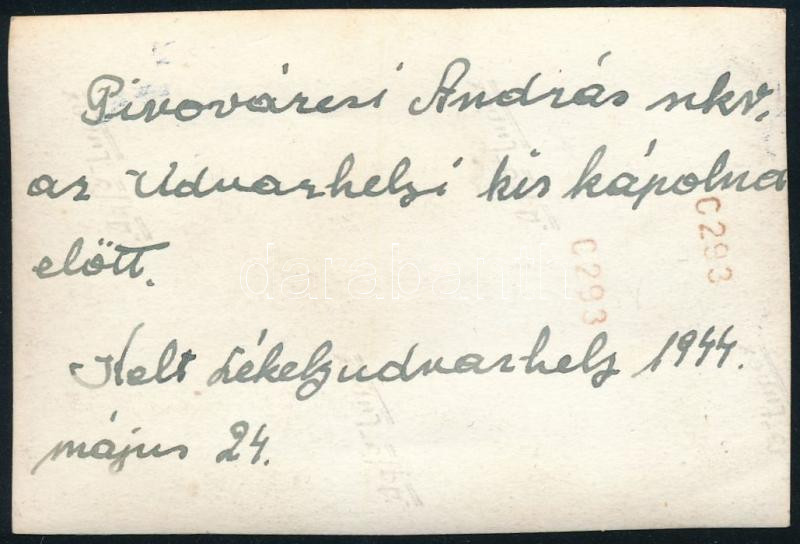 Pivovárcsi András nkv.
az Udvarhelyi kis kápolna
előtt.
C293
C293
Kelt Székelyudvarhely 1944.
május 24.
darabanth